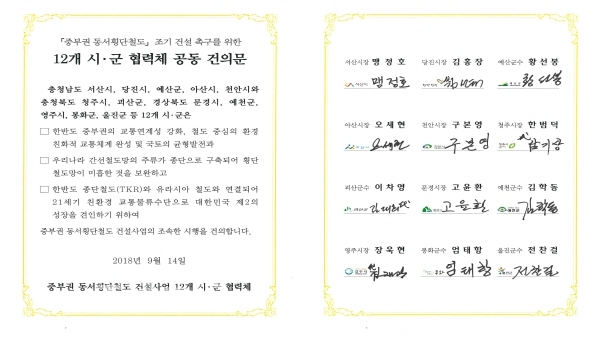 「중부권 동서횡단철도」 조기 건설 촉구를 위한
12개 시·군 협력체 공동 건의문
충청남도 서산시, 당진시, 예산군, 아산시, 천안시와
충청북도 청주시, 괴산군, 경상북도 문경시, 예천군,
영주시, 봉화군, 울진군 등 12개 시·군은
□ 한반도 중부권의 교통연계성 강화, 철도 중심의 환경
친화적 교통체계 완성 및 국토의 균형발전과
□ 우리나라 간선철도망의 주류가 종단으로 구축되어 횡단
철도망이 미흡한 것을 보완하고
□ 한반도 종단철도(TKR)와 유라시아 철도와 연결되어
21세기 친환경 교통물류수단으로 대한민국 제2의
성장을 견인하기 위하여
중부권 동서횡단철도 건설사업의 조속한 시행을 건의합니다.
2018년 9월 14일
중부권 동서횡단철도 건설사업 12개 시·군 협력체
서산시장 맹정호 당진시장 김홍장 예산군수 황선봉
맹정호
아산시장 오세현 천안시장 구본영 청주시장 한범덕
오세현 구본영
괴산군수 이차영 문경시장 고윤환 예천군수 김학동
고윤환 김학동
영주시장 장욱현 봉화군수 엄태항 울진군수 전찬걸
엄태항 전찬걸